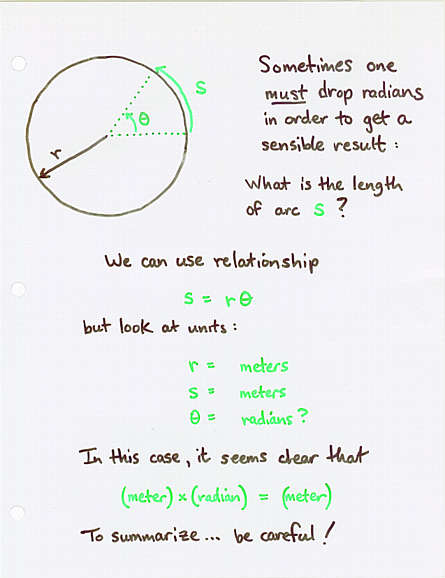 Sometimes one
must drop radians
in order to get a
sensible result :
What is the length
of arc s ?
s
θ
r
We can use relationship
s = r θ
but look at units :
r = meters
s = meters
θ = radians ?
In this case, it seems clear that
(meter) × (radian) = (meter)
To summarize ... be careful !